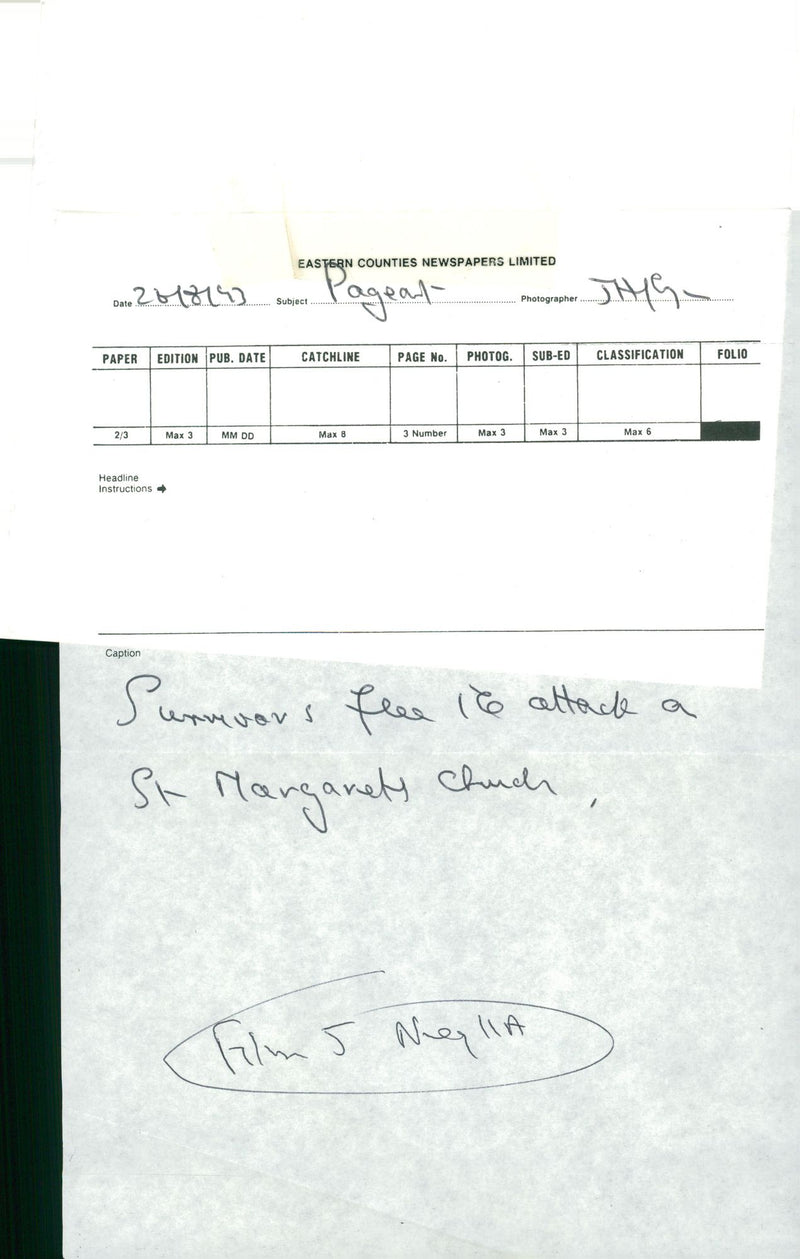 EASTERN COUNTIES NEWSPAPERS LIMITED
Date Subject Pageant Photographer
PAPER EDITION PUB. DATE CATCHLINE PAGE No. PHOTOG. SUB-ED CLASSIFICATION FOLIO
2/3 Max 3 MM DD Max 8 3 Number Max 3 Max 3 Max 6
Headline
Instructions
Caption
Survivors flee attack a
St Margarets Church,
Film 5 Neg 11A